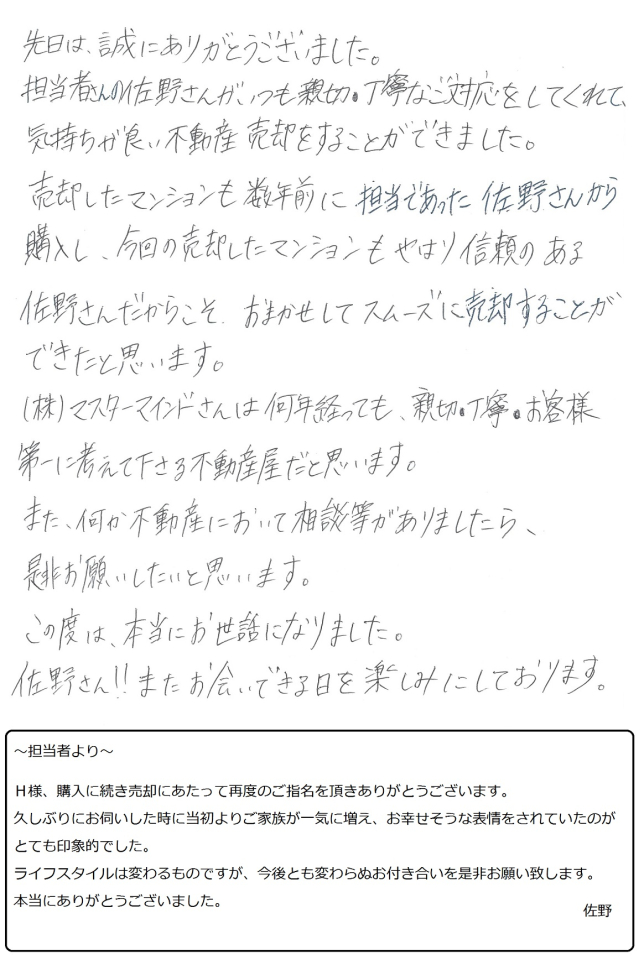 先日は、誠にありがとうございました。
担当者さんの佐野さんがいつも親切・丁寧なご対応をしてくれて、
気持ちが良い不動産売却をすることができました。
売却したマンションも数年前に担当であった佐野さんから
購入し、今回の売却したマンションもやはり信頼のある
佐野さんだからこそ、おまかせしてスムーズに売却することが
できたと思います。
(株)マスターマインドさんは何年経っても、親切・丁寧・お客様
第一に考えて下さる不動産屋だと思います。
また、何か不動産において相談等がありましたら、
是非お願いしたいと思います。
この度は、本当にお世話になりました。
佐野さん!!またお会いできる日を楽しみにしております。
～担当者より～
H様、購入に続き売却にあたって再度のご指名を頂きありがとうございます。
久しぶりにお伺いした時に当初よりご家族が一気に増え、お幸せそうな表情をされていたのが
とても印象的でした。
ライフスタイルは変わるものですが、今後とも変わらぬお付き合いを是非お願い致します。
本当にありがとうございました。
佐野